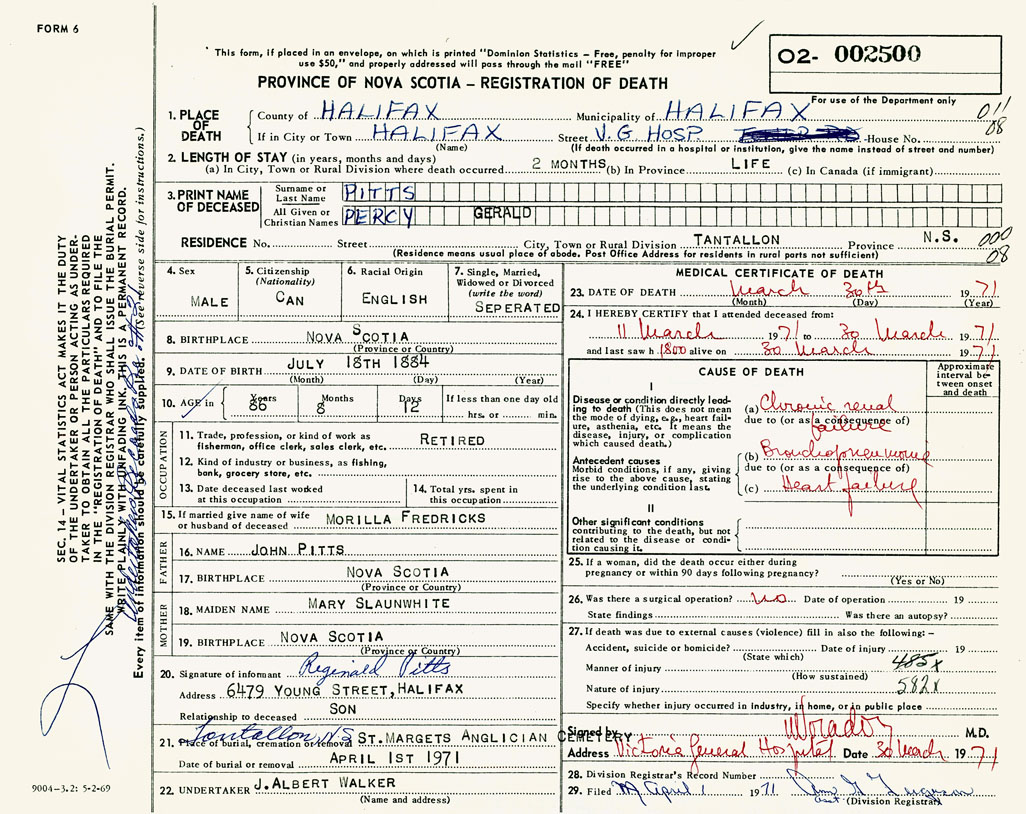 FORM 6
This form, if placed in an envelope, on which is printed "Dominion Statistics – Free, penalty for improper
use $50," and properly addressed will pass through the mail "FREE"
02- 002500
PROVINCE OF NOVA SCOTIA – REGISTRATION OF DEATH
For use of the Department only
1. PLACE OF DEATH
County of HALIFAX Municipality of HALIFAX 011
If in City or Town HALIFAX Street V.G. HOSP House No. 08
(Name) (If death occurred in a hospital or institution, give the name instead of street and number)
2. LENGTH OF STAY (in years, months and days)
(a) In City, Town or Rural Division where death occurred 2 MONTHS (b) In Province LIFE (c) In Canada (if immigrant)
3. PRINT NAME OF DECEASED
Surname or Last Name PITTS
All Given or Christian Names PERCY GERALD
RESIDENCE No. Street City, Town or Rural Division TANTALLON Province N.S. 000
(Residence means usual place of abode. Post Office Address for residents in rural parts not sufficient) 08
SEC. 14 – VITAL STATISTICS ACT MAKES IT THE DUTY
OF THE UNDERTAKER OR PERSON ACTING AS UNDER-
TAKER TO OBTAIN ALL THE PARTICULARS REQUIRED
IN THE "REGISTRATION OF DEATH" AND TO FILE THE
SAME WITH THE DIVISION REGISTRAR WHO SHALL ISSUE THE BURIAL PERMIT.
WRITE PLAINLY WITH UNFADING INK, THIS IS A PERMANENT RECORD.
Every item of information should be carefully supplied. (See reverse side for instructions.)
4. Sex
MALE
5. Citizenship
(Nationality)
CAN
6. Racial Origin
ENGLISH
7. Single, Married,
Widowed or Divorced
(write the word)
SEPERATED
8. BIRTHPLACE NOVA SCOTIA
(Province or Country)
9. DATE OF BIRTH JULY 18TH 1884
(Month) (Day) (Year)
10. AGE in Years 86 Months 8 Days 12 If less than one day old
hrs. or min.
OCCUPATION
11. Trade, profession, or kind of work as
fisherman, office clerk, sales clerk, etc. RETIRED
12. Kind of industry or business, as fishing,
bank, grocery store, etc.
13. Date deceased last worked
at this occupation
14. Total yrs. spent in
this occupation
15. If married give name of wife
or husband of deceased MORILLA FREDRICKS
FATHER
16. NAME JOHN PITTS
17. BIRTHPLACE NOVA SCOTIA
(Province or Country)
MOTHER
18. MAIDEN NAME MARY SLAUNWHITE
19. BIRTHPLACE NOVA SCOTIA
(Province or Country)
20. Signature of informant Reginald Pitts
Address 6479 YOUNG STREET, HALIFAX
Relationship to deceased SON
21. Place of burial, cremation or removal Tantallon N.S ST. MARGETS ANGLICIAN CEMETERY
Date of burial or removal APRIL 1ST 1971
22. UNDERTAKER J. ALBERT WALKER
(Name and address)
9004–3.2: 5-2-69
MEDICAL CERTIFICATE OF DEATH
23. DATE OF DEATH March 30th 1971
(Month) (Day) (Year)
24. I HEREBY CERTIFY that I attended deceased from:
11 March 1971 to 30 March 1971
and last saw h 1800 alive on 30 March 1971
CAUSE OF DEATH
Approximate
interval be-
tween onset
and death
I
Disease or condition directly lead-
ing to death (This does not mean
the mode of dying, e.g., heart fail-
ure, asthenia, etc. It means the
disease, injury, or complication
which caused death.)
(a) Chronic renal
due to (or as a consequence of)
failure
Antecedent causes
Morbid conditions, if any, giving
rise to the above cause, stating
the underlying condition last.
(b) Bronchopneumonia
due to (or as a consequence of)
(c) Heart failure
II
Other significant conditions
contributing to the death, but not
related to the disease or condi-
tion causing it.
25. If a woman, did the death occur either during
pregnancy or within 90 days following pregnancy?
(Yes or No)
26. Was there a surgical operation? No Date of operation 19
State findings Was there an autopsy?
27. If death was due to external causes (violence) fill in also the following: –
Accident, suicide or homicide? Date of injury 19
(State which)
Manner of injury 485x
(How sustained)
Nature of injury 582x
Specify whether injury occurred in industry, in home, or in public place
Signed by M.D.
Address Victoria General Hospital Date 30 March 1971
28. Division Registrar's Record Number
29. Filed April 1 1971
asst. (Division Registrar)